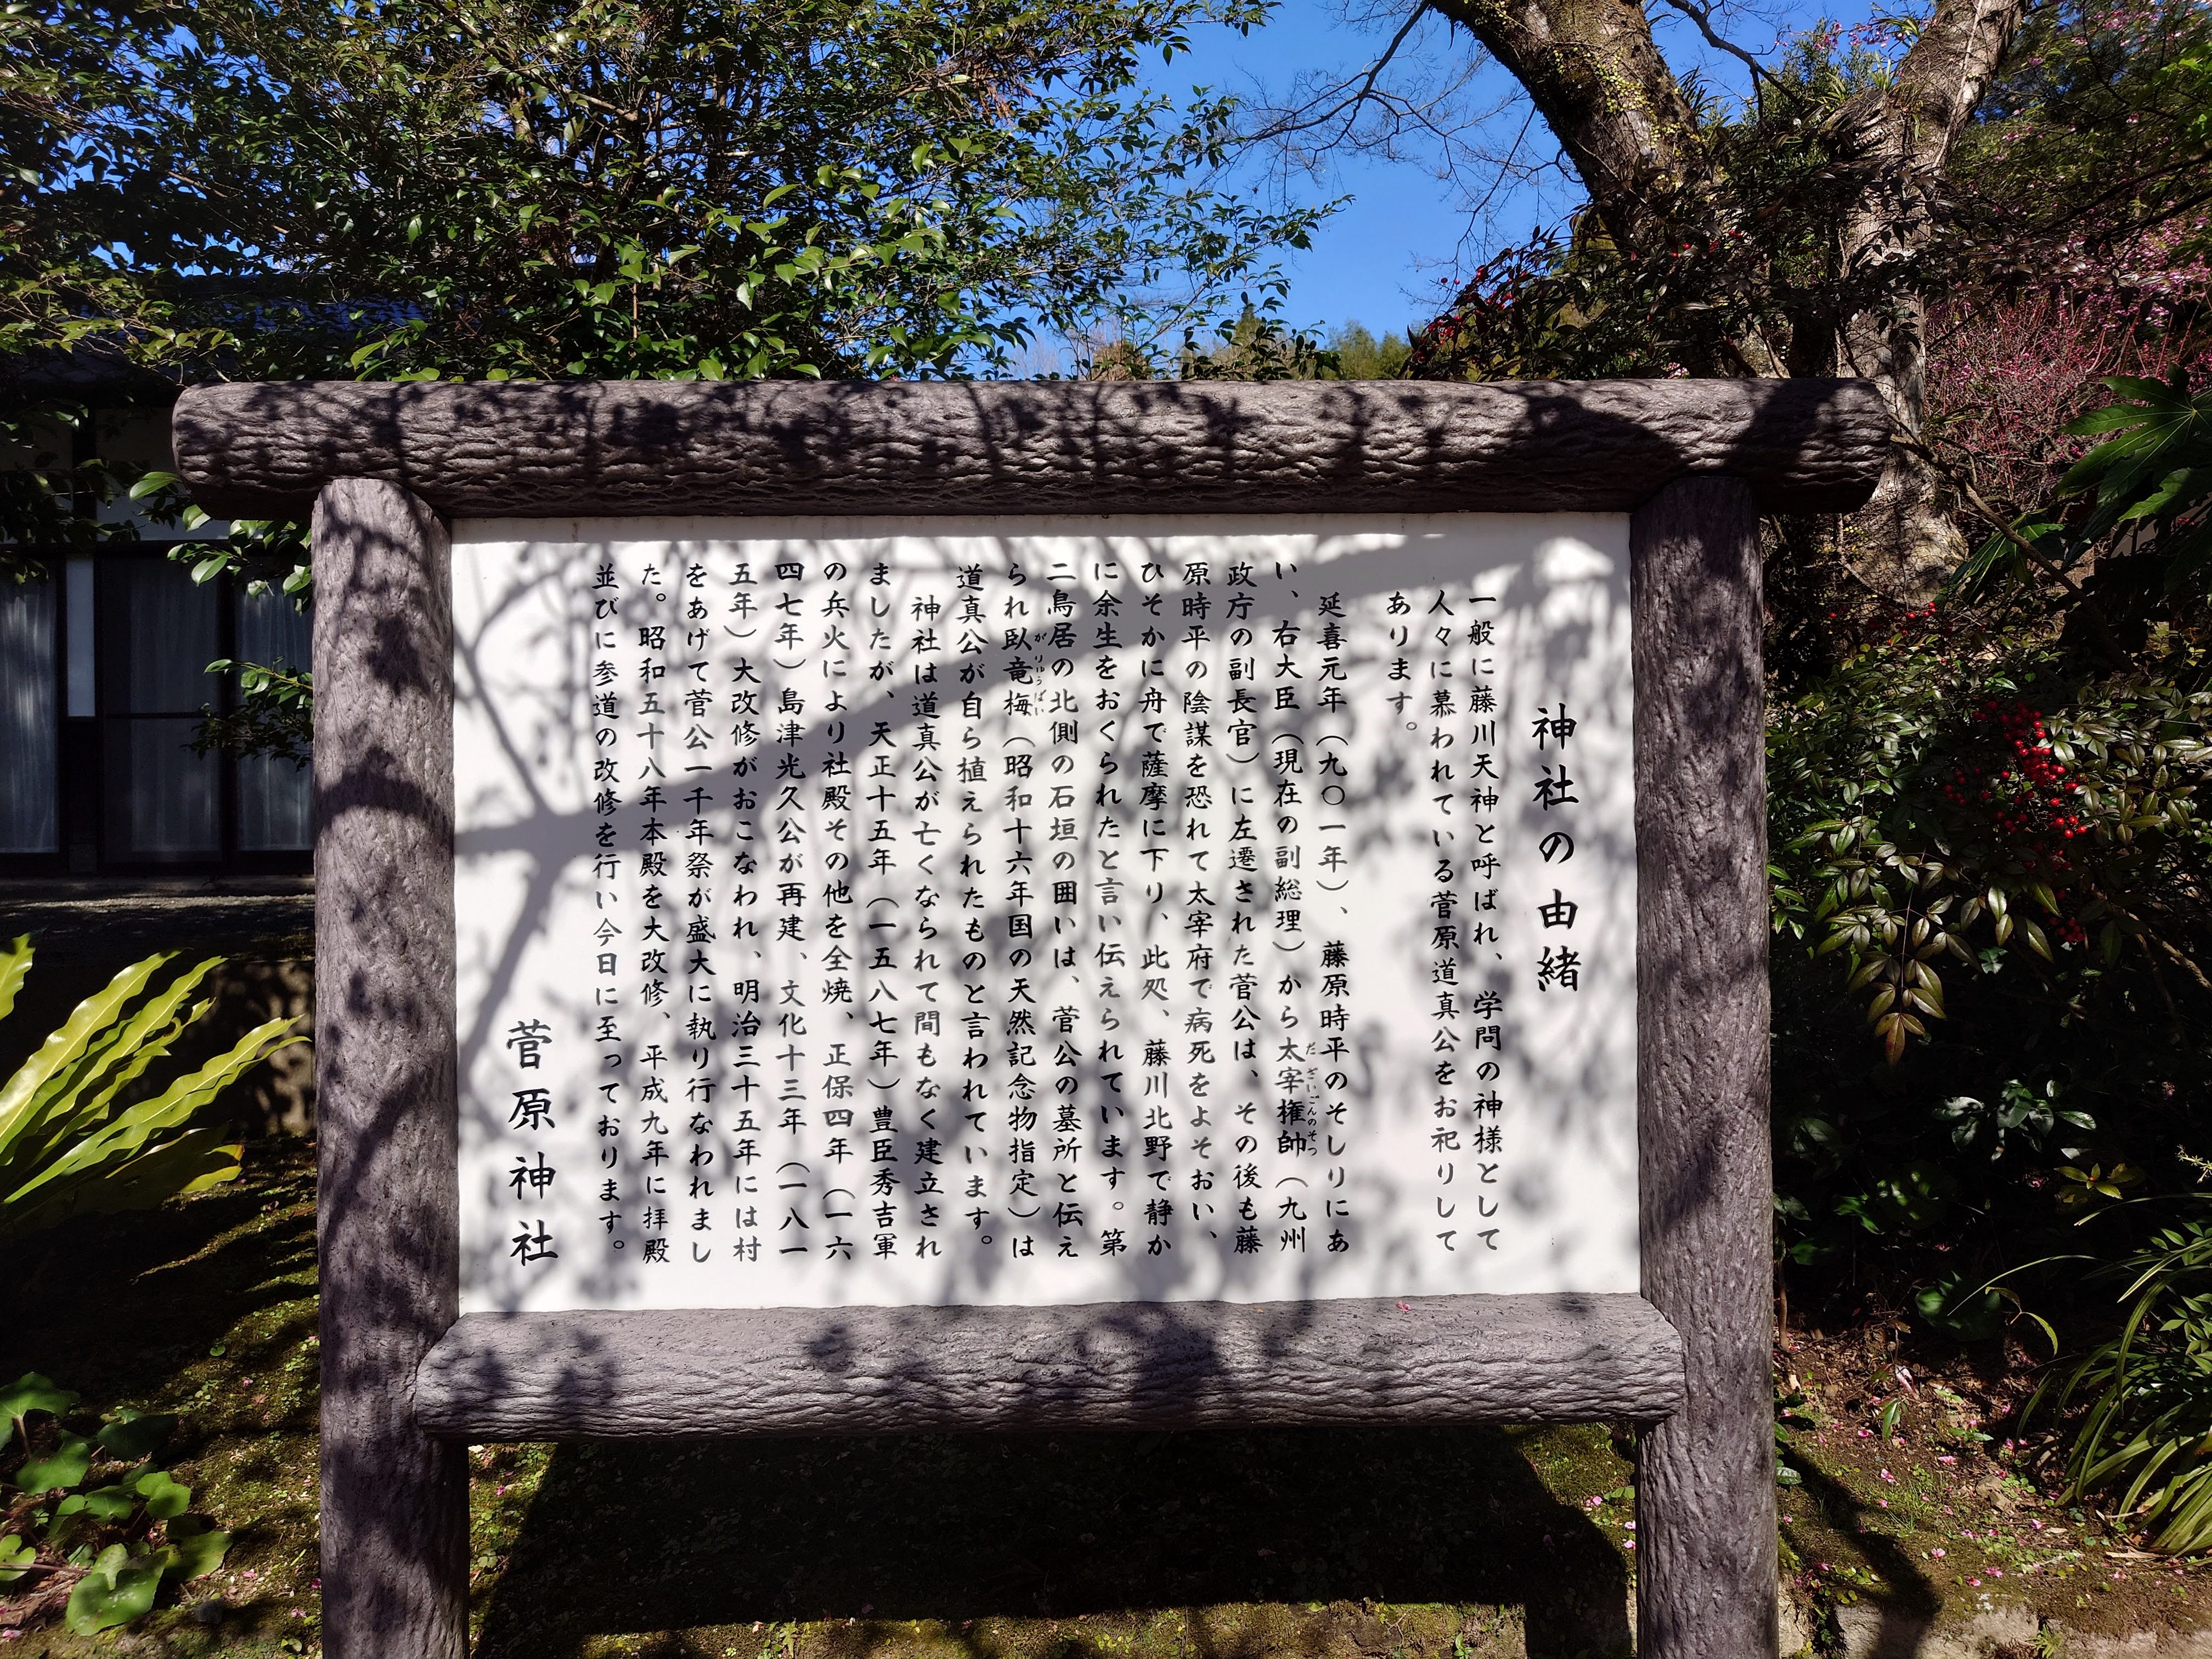 神社の由緒
一般に藤川天神と呼ばれ、学問の神様として
人々に慕われている菅原道真公をお祀りして
あります。
延喜元年（九〇一年）、藤原時平のそしりにあ
い、右大臣（現在の副総理）から太宰権帥（九州
だざいごんのそつ
政庁の副長官）に左遷された菅公は、その後も藤
原時平の陰謀を恐れて太宰府で病死をよそおい、
ひそかに舟で薩摩に下り、此処、藤川北野で静か
に余生をおくられたと言い伝えられています。第
二鳥居の北側の石垣の囲いは、菅公の墓所と伝え
られ臥竜梅（昭和十六年国の天然記念物指定）は
がりゅうばい
道真公が自ら植えられたものと言われています。
神社は道真公が亡くなられて間もなく建立され
ましたが、天正十五年（一五八七年）豊臣秀吉軍
の兵火により社殿その他を全焼、正保四年（一六
四七年）島津光久公が再建、文化十三年（一八一
五年）大改修がおこなわれ、明治三十五年には村
をあげて菅公一千年祭が盛大に執り行なわれまし
た。昭和五十八年本殿を大改修、平成九年に拝殿
並びに参道の改修を行い今日に至っております。
菅原神社